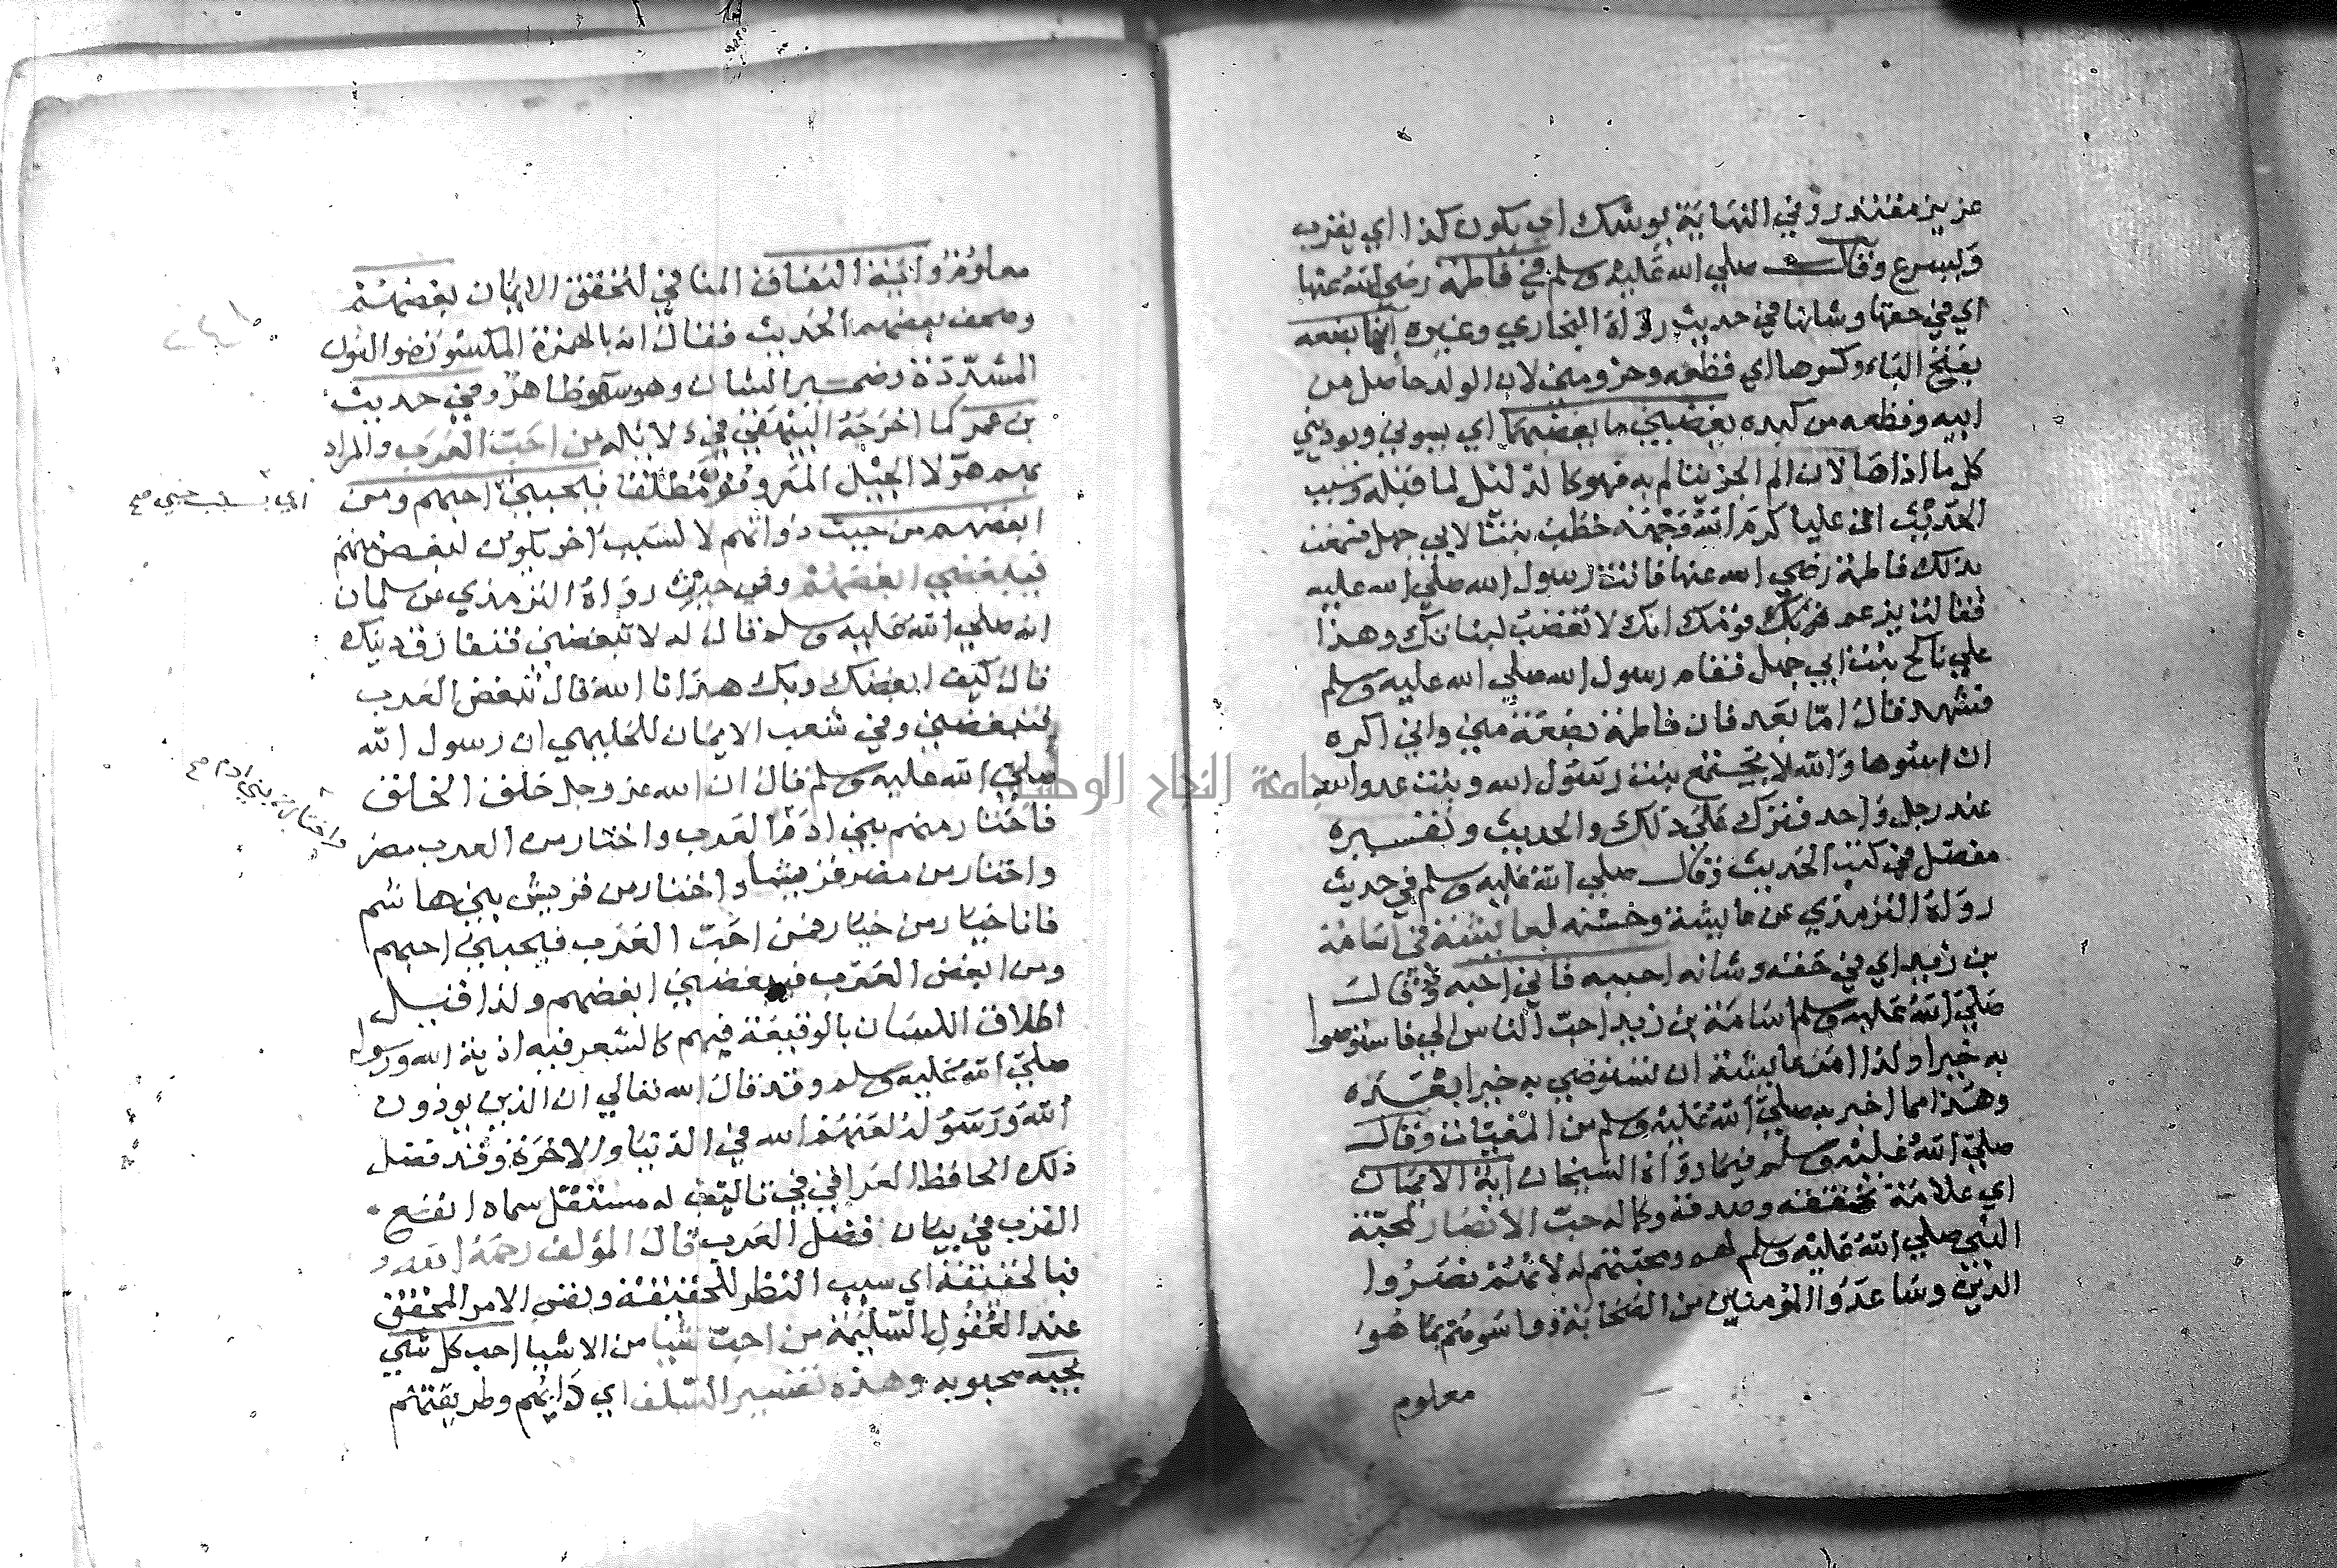 عزيز مقتدر وفي النهاية يوشك اي يكون كذا اي يقرب
ويسرع وقال صلي الله عليه وسلم في فاطمة رضي الله عنها
اي في حقها وشانها في حديث رواه البخاري وغيره انها بضعه
بفتح الباء وكسرها اي قطعه وجزو مني لان الولد حاصل من
ابيه وقطعه من كبده يغضبني ما يغضبها اي يسوني ويوذيني
كل ما اذاها لان الم الجزيتالم به فهو كالدليل لما قبله وسبب
الحديث ان عليا كرم الله وجهه خطب بنتا لابي جهل فسمعت
بذلك فاطمة رضي الله عنها فاتت رسول الله صلي الله عليه
فقالت يزعم قومك انك لا تغضب لبناتك وهذا
علي ناكح بنت ابي جهل فقام رسول الله صلي الله عليه وسلم
فتشهد فقال امّا بعد فان فاطمة بضعة مني واني اكره
ان يسوها والله لا يجتمع بنت رسول الله وبنت عدوالله
عند رجل واحد فترك علي ذلك والحديث وتفسيره
مفصل في كتب الحديث وقال صلي الله عليه وسلم في حديث
رواه الترمذي عن عايشة وحسنه لعايشة في اسامة
بن زيد اي في حقه وشانه احبيه فاني احبه وقال
صلي الله عليه وسلم اسامة بن زيد احبّ الناس الي فاستوصوا
به خيرا ولذا امر عايشة ان تستوصي به خيرا بعده
وهذا مما اخبر به صلي الله عليه وسلم من المغيبات وقال
صلي الله عليه وسلم فيما رواه الشيخان اية الايمان
اي علامة تحققه وصدقه وكماله حبّ الانصار لمحبّة
النبي صلي الله عليه وسلم لهم ومحبتهم له لانهم نصروا
الدين وساعدوا المؤمنين من الصحابة وواسوهم بما هو
معلوم
معلوم واية النفاق المنافي لتحقق الايمان بغضهم
وصحف بعضهم الحديث فقال انه بالهمزة المكسورة والنون
المشددة وضمير الشان وهو سهو ظاهر وفي حديث
بن عمر كما اخرجه البيهقي في دلايله من احبّ العرب والمراد
بهم هولا الجيل المعروف مطلقا فبحبي احبهم ومن
اي بسبب حبي صح
ابغضهم من حيث ذواتهم لا لسبب اخر يكون لبعض منهم
فببغضي ابغضهم وفي حديث رواه الترمذي عن سلمان
انه صلي الله عليه وسلم قال له لا تبغضني فتفارق دينك
قال كيف ابغضك وبك هدانا الله قال تبغض العرب
فتبغضني وفي شعب الايمان للحليمي ان رسول الله
صلي الله عليه وسلم قال ان الله عز وجل خلق الخلق
فاختار منهم بني ادم العرب واختار من العرب مضر
واختار من بني ادم صح
واختار من مضر قريشا واختار من قريش بني هاشم
فانا خيار من خيار فمن احبّ العرب فبحبي احبهم
ومن ابغض العرب فببغضي ابغضهم ولذا قيل
اطلاق اللسان بالوقيعة فيهم كالشعر فيه اذية الله ورسوله
صلي الله عليه وسلم وقد قال الله تعالي ان الذين يوذون
الله ورسوله لعنهم الله في الدنيا والاخرة وقد فصل
ذلك الحافظ العراقي في تاليف له مستقل سماه
القرب في بيان فضل العرب قال المؤلف رحمه الله
فبالحقيقة اي سبب النظر للحقيقة ونفس الامر المحقق
عند العقول السليمة من احبّ شيا من الاشيا احب كل شي
يحبه محبوبه وهذه تفسير السلف اي دايهم وطريقتهم
جامعة النجاح الوطنية